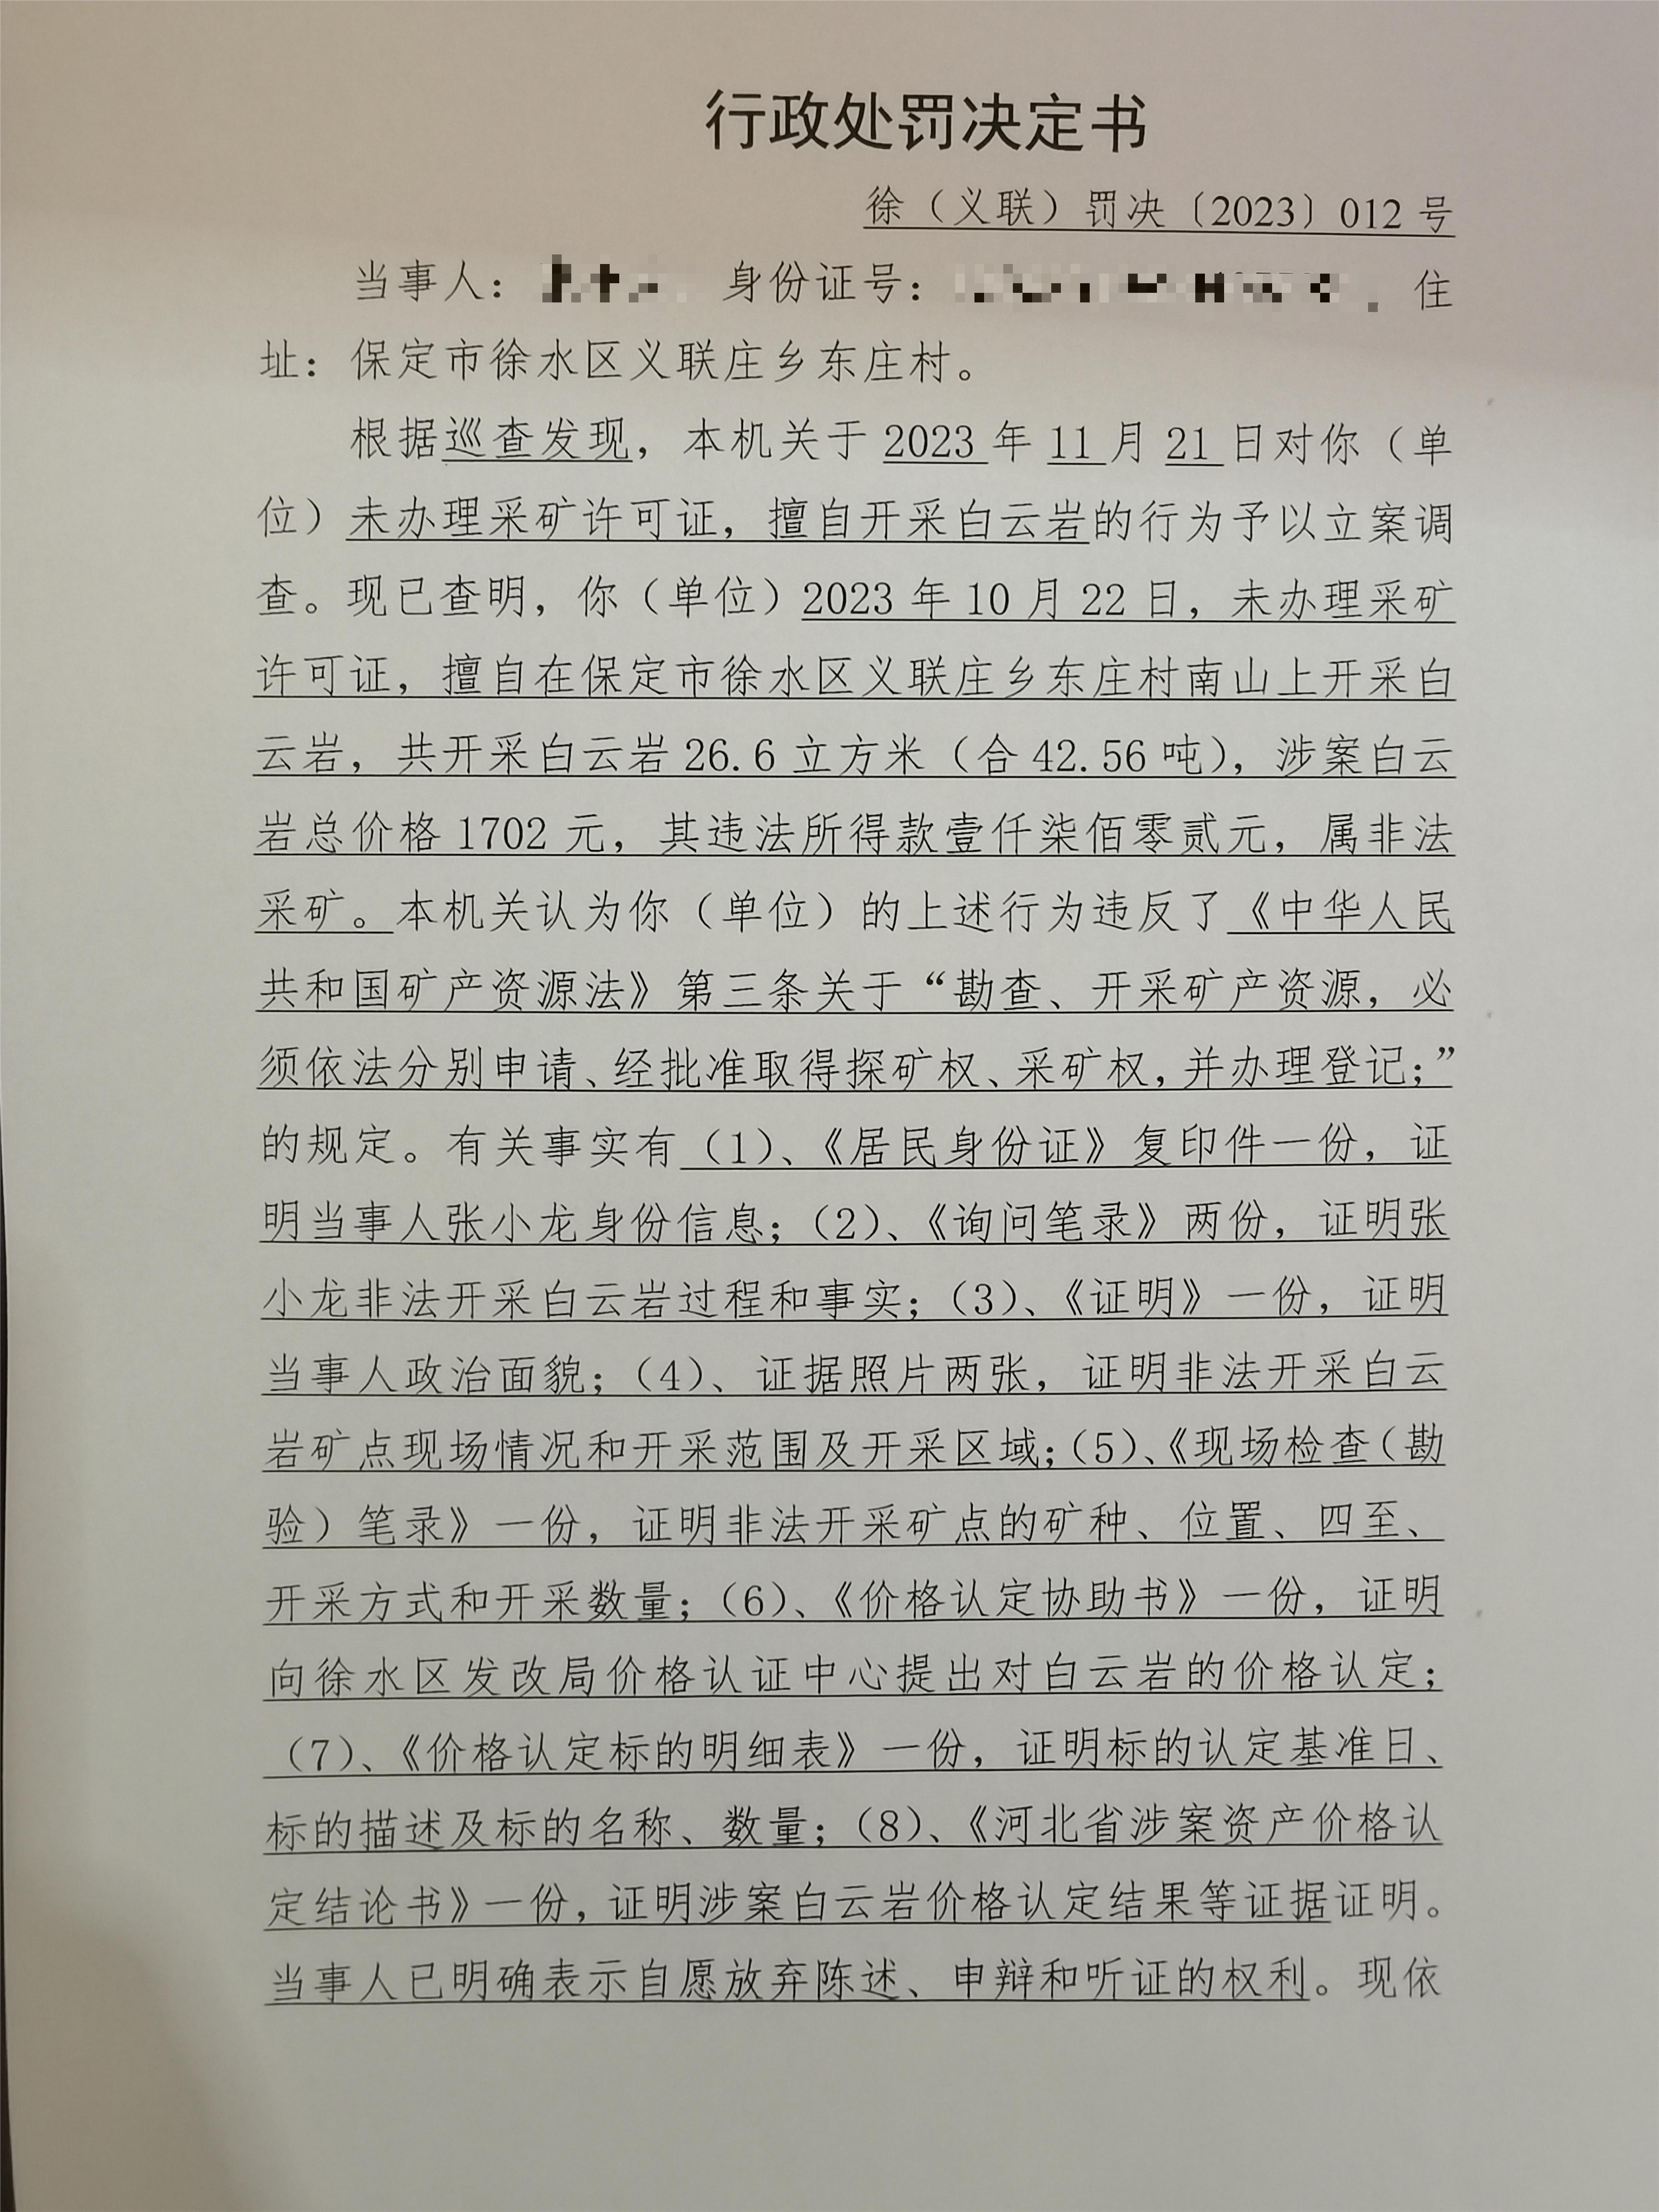 行政处罚决定书
徐（义联）罚决〔2023〕012 号
当事人： 身份证号： 住
址：保定市徐水区义联庄乡东庄村。
根据巡查发现，本机关于 2023 年 11 月 21 日对你（单
位）未办理采矿许可证，擅自开采白云岩的行为予以立案调
查。现已查明，你（单位）2023 年 10 月 22 日，未办理采矿
许可证，擅自在保定市徐水区义联庄乡东庄村南山上开采白
云岩，共开采白云岩 26.6 立方米（合 42.56 吨），涉案白云
岩总价格 1702 元，其违法所得款壹仟柒佰零贰元，属非法
采矿。本机关认为你（单位）的上述行为违反了《中华人民
共和国矿产资源法》第三条关于“勘查、开采矿产资源，必
须依法分别申请、经批准取得探矿权、采矿权，并办理登记；”
的规定。有关事实有（1）、《居民身份证》复印件一份，证
明当事人张小龙身份信息；（2）、《询问笔录》两份，证明张
小龙非法开采白云岩过程和事实；（3）、《证明》一份，证明
当事人政治面貌；（4）、证据照片两张，证明非法开采白云
岩矿点现场情况和开采范围及开采区域；（5）、《现场检查（勘
验）笔录》一份，证明非法开采矿点的矿种、位置、四至、
开采方式和开采数量；（6）、《价格认定协助书》一份，证明
向徐水区发改局价格认证中心提出对白云岩的价格认定；
（7）、《价格认定标的明细表》一份，证明标的认定基准日、
标的描述及标的名称、数量；（8）、《河北省涉案资产价格认
定结论书》一份，证明涉案白云岩价格认定结果等证据证明。
当事人已明确表示自愿放弃陈述、申辩和听证的权利。现依